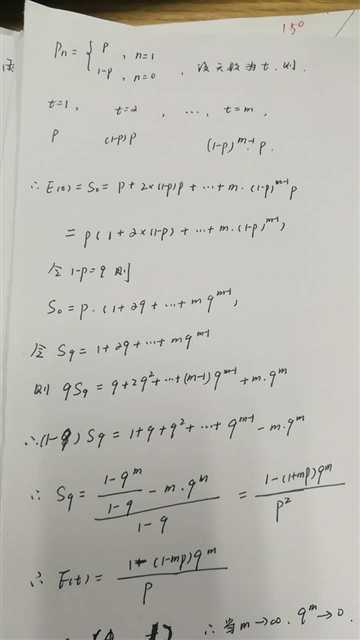 150
Pn = { p , n=1
1-p , n=0 , 设天数为t, 则.
t=1, t=2 , ..., t=m,
P (1-p)p (1-p)^{m-1}·p.
∴ E(t) = S₀ = p + 2×(1-p)p + ... + m·(1-p)^{m-1}p
= p(1+2×(1-p)+...+m·(1-p)^{m-1})
令 1-p=q 则
S₀ = p·(1+2q+...+mq^{m-1})
令 Sq = 1+2q+...+mq^{m-1}
则 qSq = q+2q²+...+(m-1)q^{m-1}+m·q^m
∴(1-q)Sq = 1+q+q²+...+q^{m-1}-m·q^m
∴ Sq = \frac{\frac{1-q^m}{1-q}-m·q^m}{1-q} = \frac{1-(1+mp)q^m}{p²}
∴ E(t) = \frac{1-(1-mp)q^m}{p}
∴当m→∞. q^m→0.